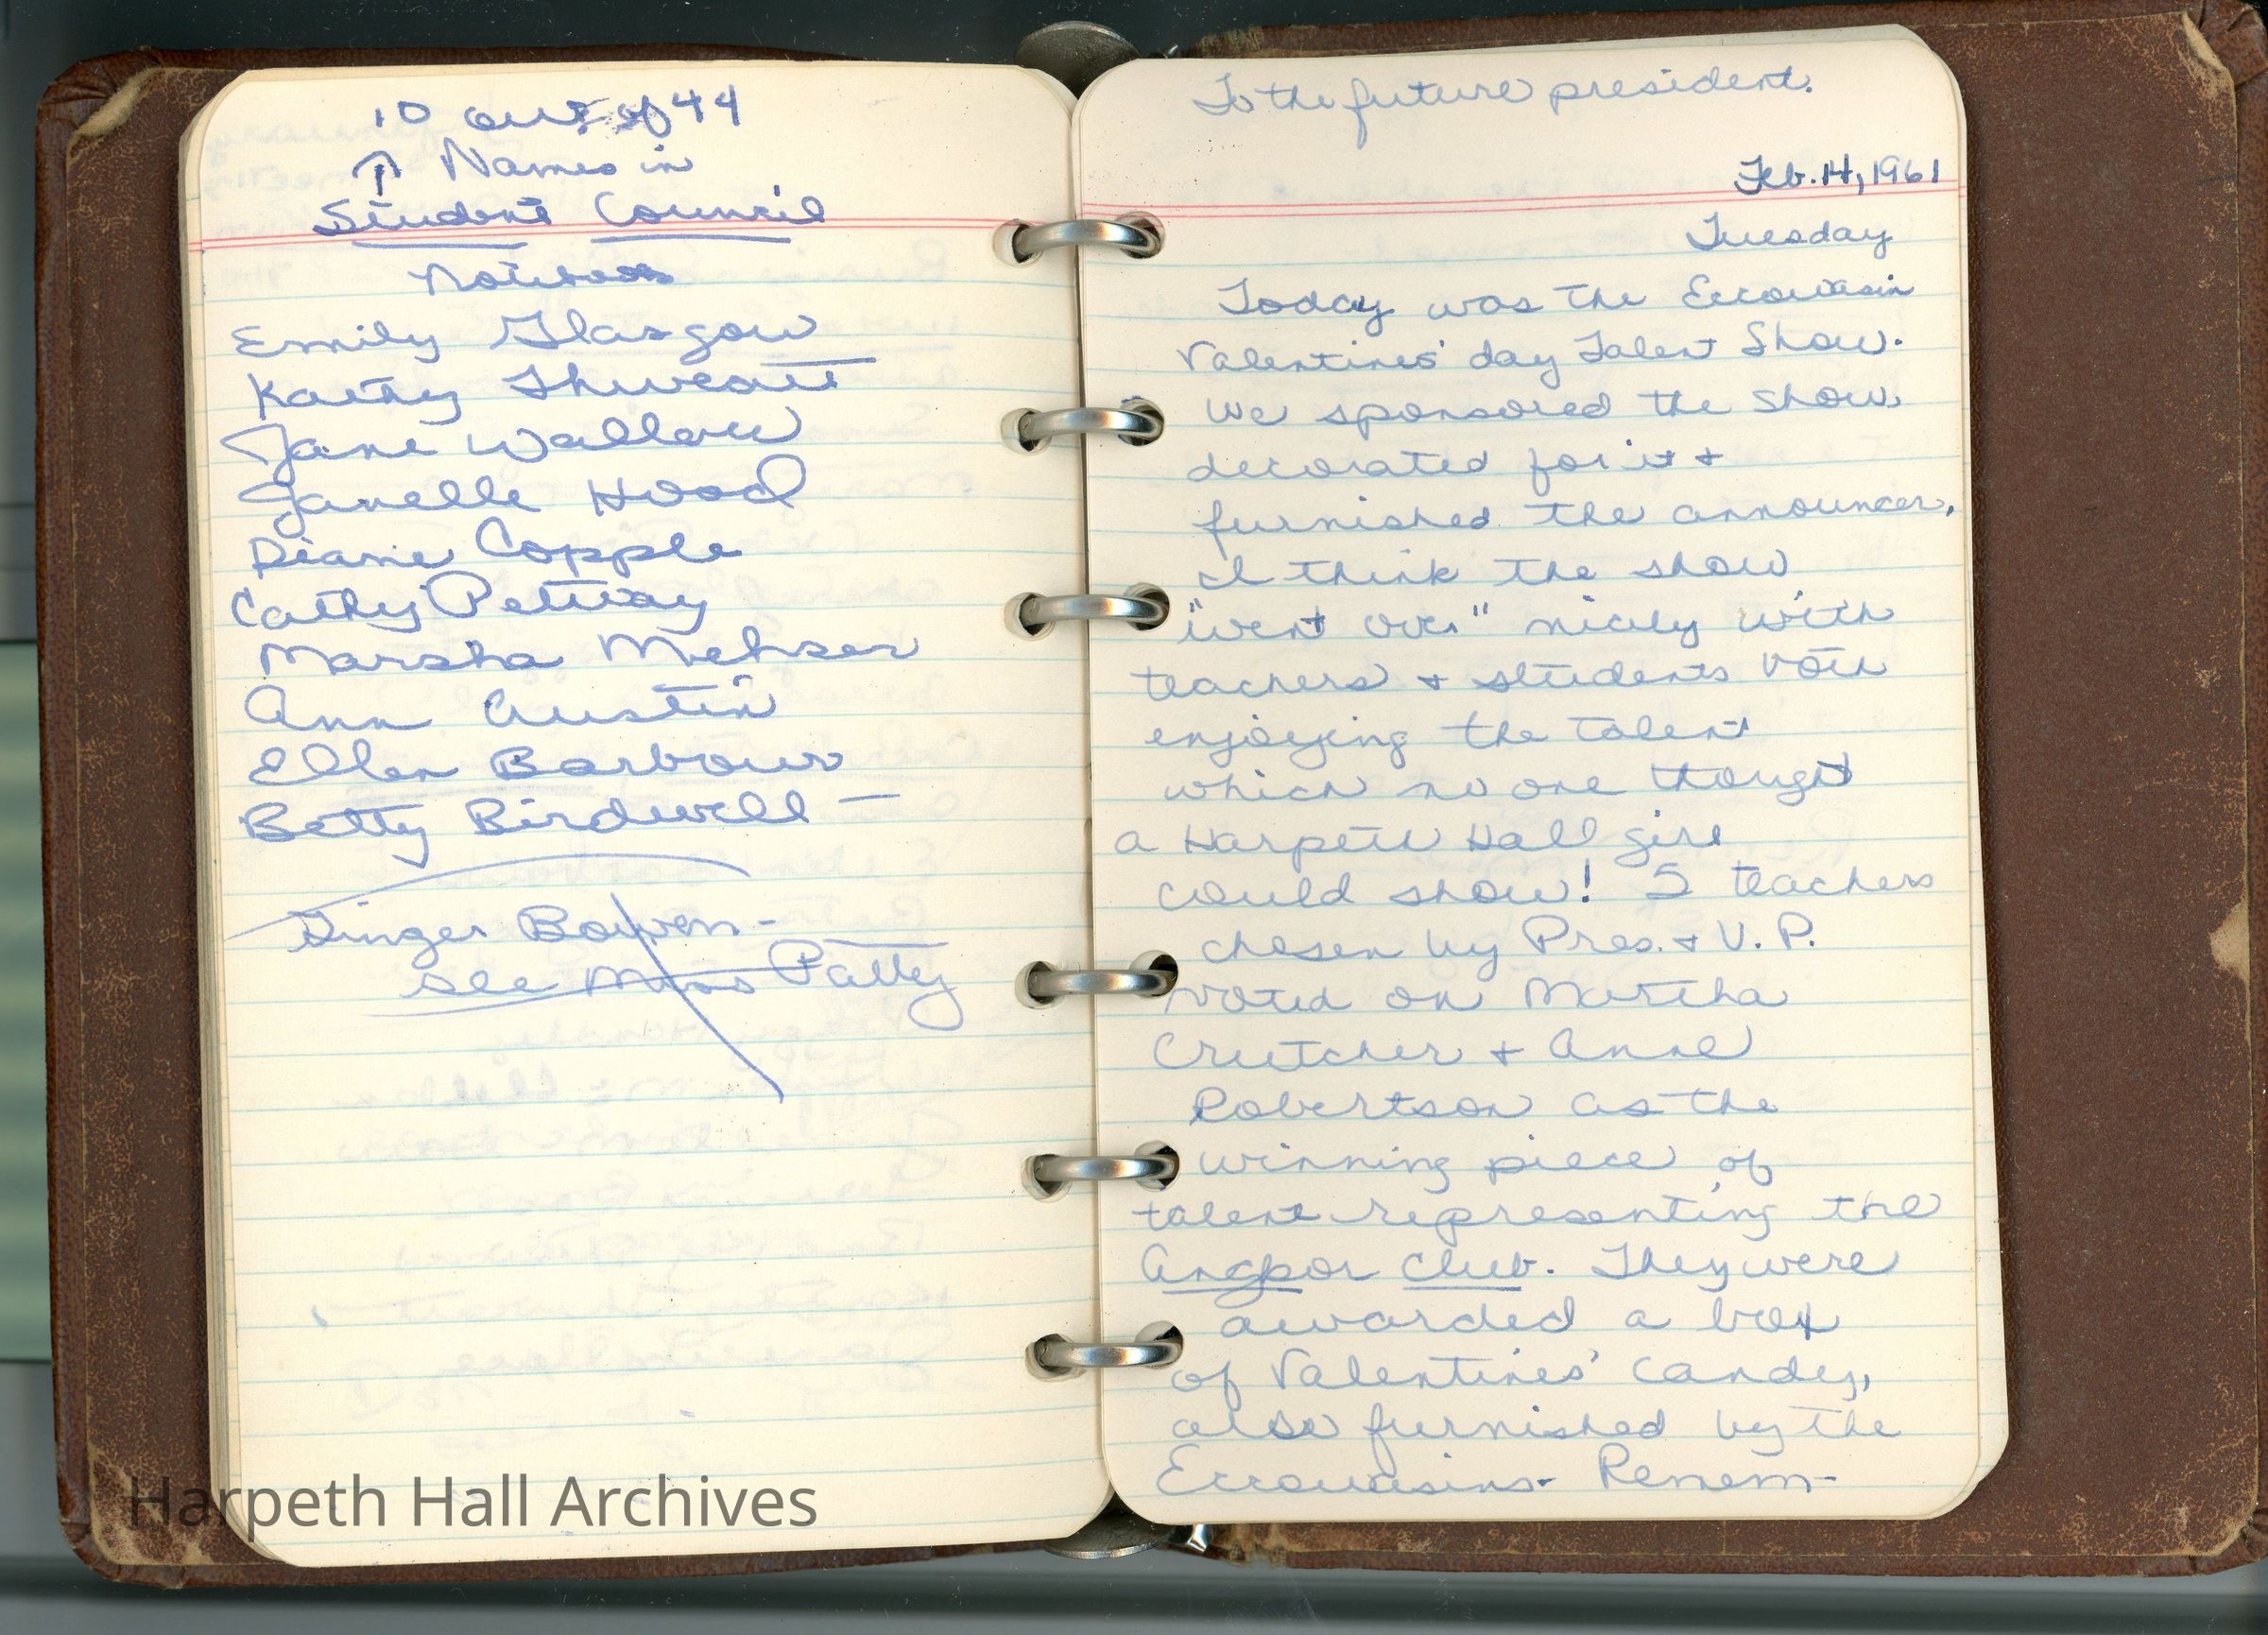 10 out of 44
↑ Names in
Student Council
Notebook
Emily Glasgow
Kathy Thweatt
Jane Wallace
Janelle Hood
Diane Copple
Cathy Pettway
Marsha Mehser
Ann Austin
Ellen Barbour
Betty Birdwell —
Ginger Bowen -
see Miss Patty
To the future president.
Feb. 14, 1961
Tuesday
Today was the Eccowasin
Valentines' day Talent Show.
We sponsored the show,
decorated for it +
furnished the announcer,
I think the show
"went over" nicely with
teachers + students both
enjoying the talent
which no one thought
a Harpeth Hall girl
could show! 5 teachers
chosen by Pres. + V. P.
voted on Martha
Crutcher + Anne
Robertson as the
winning piece of
talent representing the
Angpor Club. They were
awarded a box
of Valentines' candy,
also furnished by the
Eccowasins. Remem-
Harpeth Hall Archives